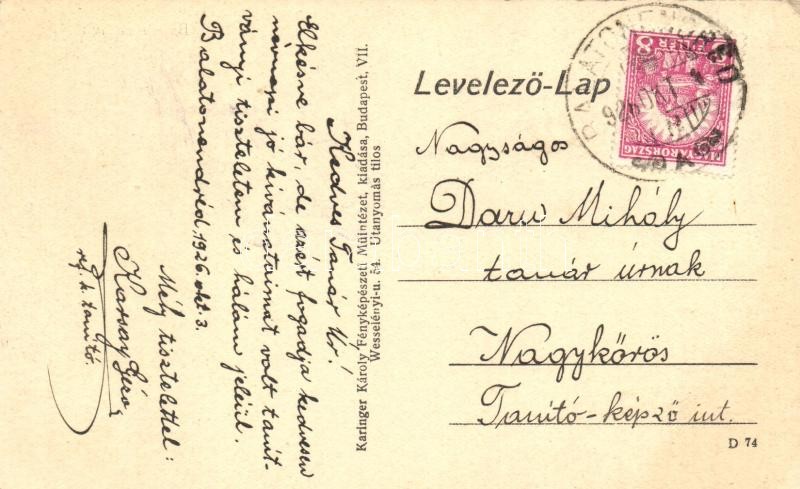 Kedves Tanár Úr!
Elkésve bár, de azért fogadja kedvesen
névnapi jó kívánataimat volt tanít-
ványi tiszteletem és hálám jeléül.
Balatonendréd, 1926. okt. 3.
Mély tisztelettel:
Karsay Géza
rk. tanító.
Karinger Károly Fényképészeti Műintézet, kiadása, Budapest, VII.
Wesselényi-u. 54. Utánnyomás tilos
Levelező-Lap
MAGYARORSZÁG
8
926 OKT
Nagyságos
Daru Mihály
tanár úrnak
Nagykőrös
Tanító-képző int.
D 74